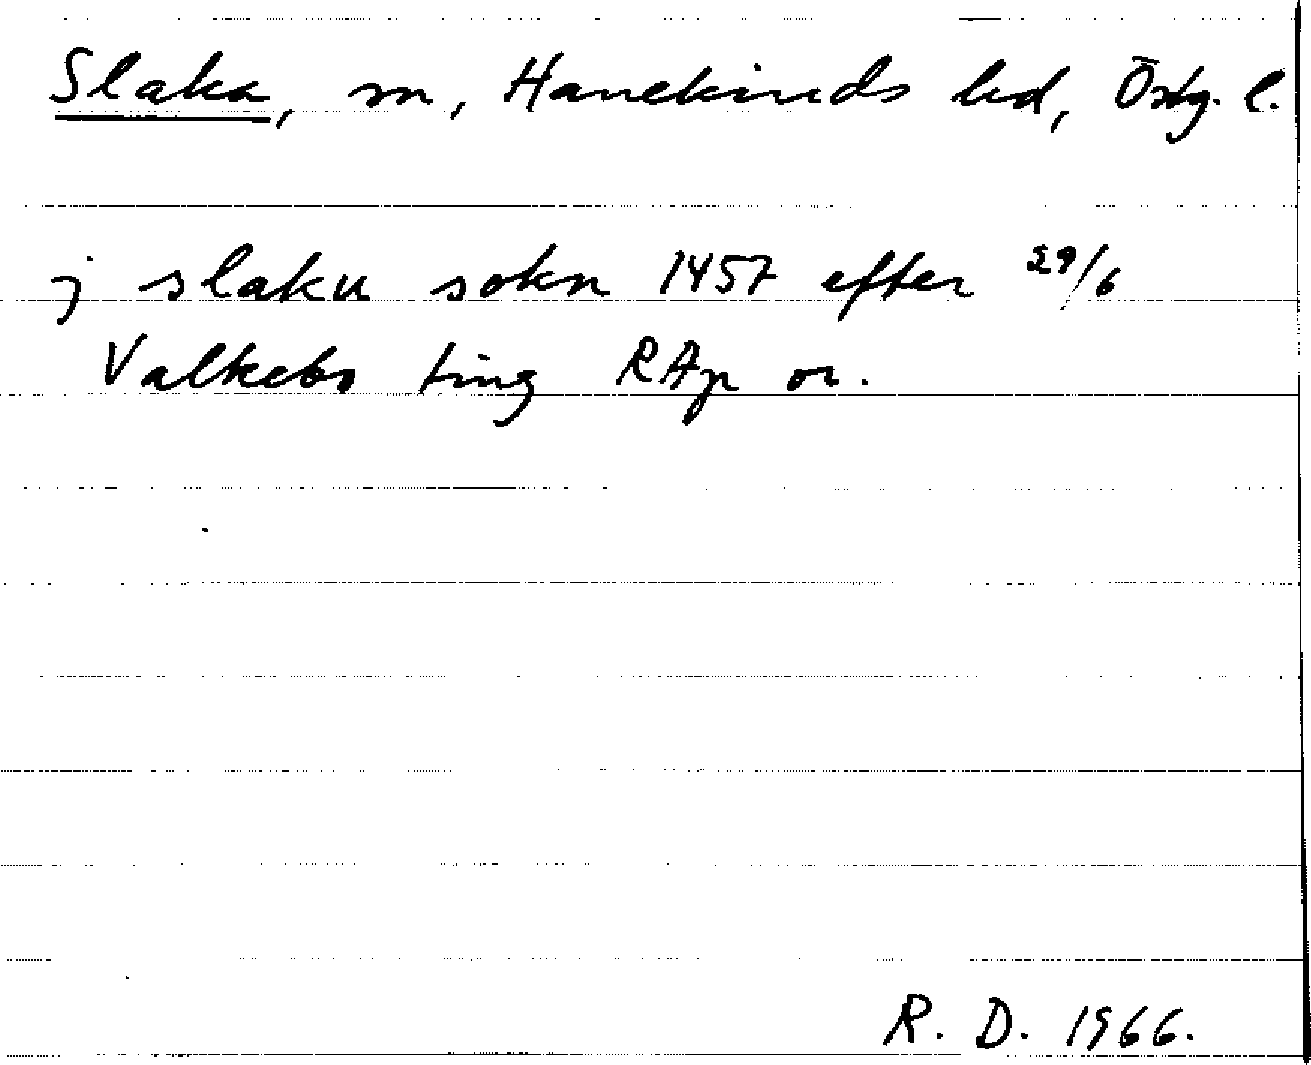 Slaka, sn, Hanekinds hd, Östg. l.
j slaku sokn 1457 efter 29/6
Valkebo ting RAp or.
R. D. 1966.